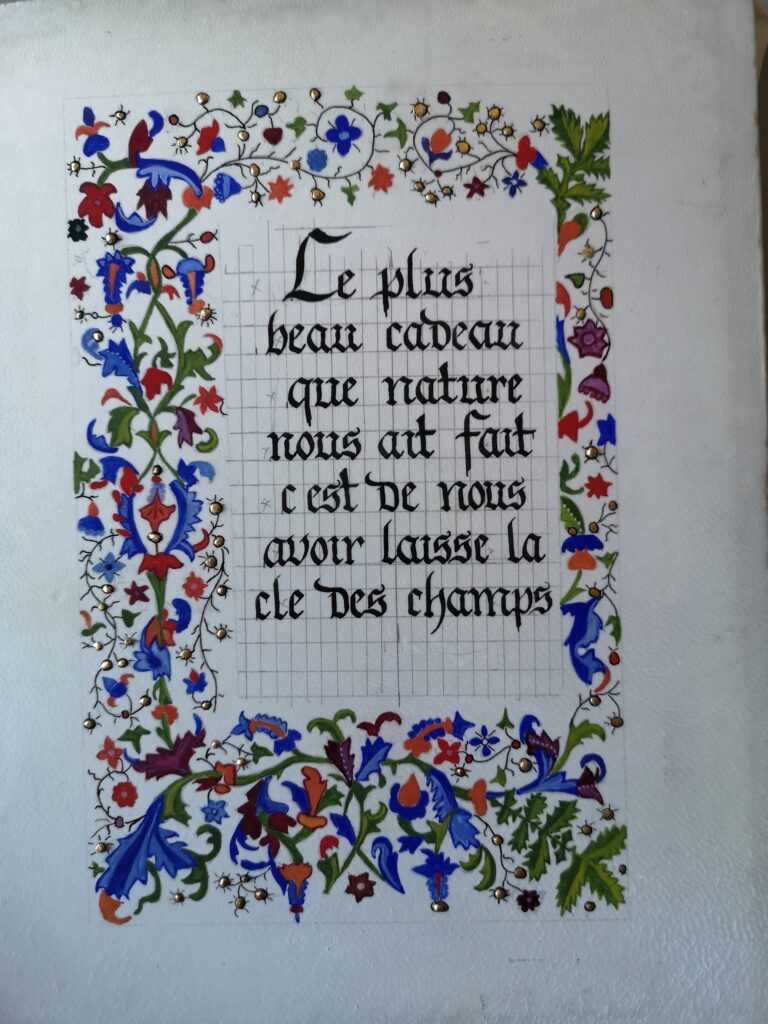 Le plus
beau cadeau
que nature
nous ait fait
c est de nous
avoir laisse la
cle des champs